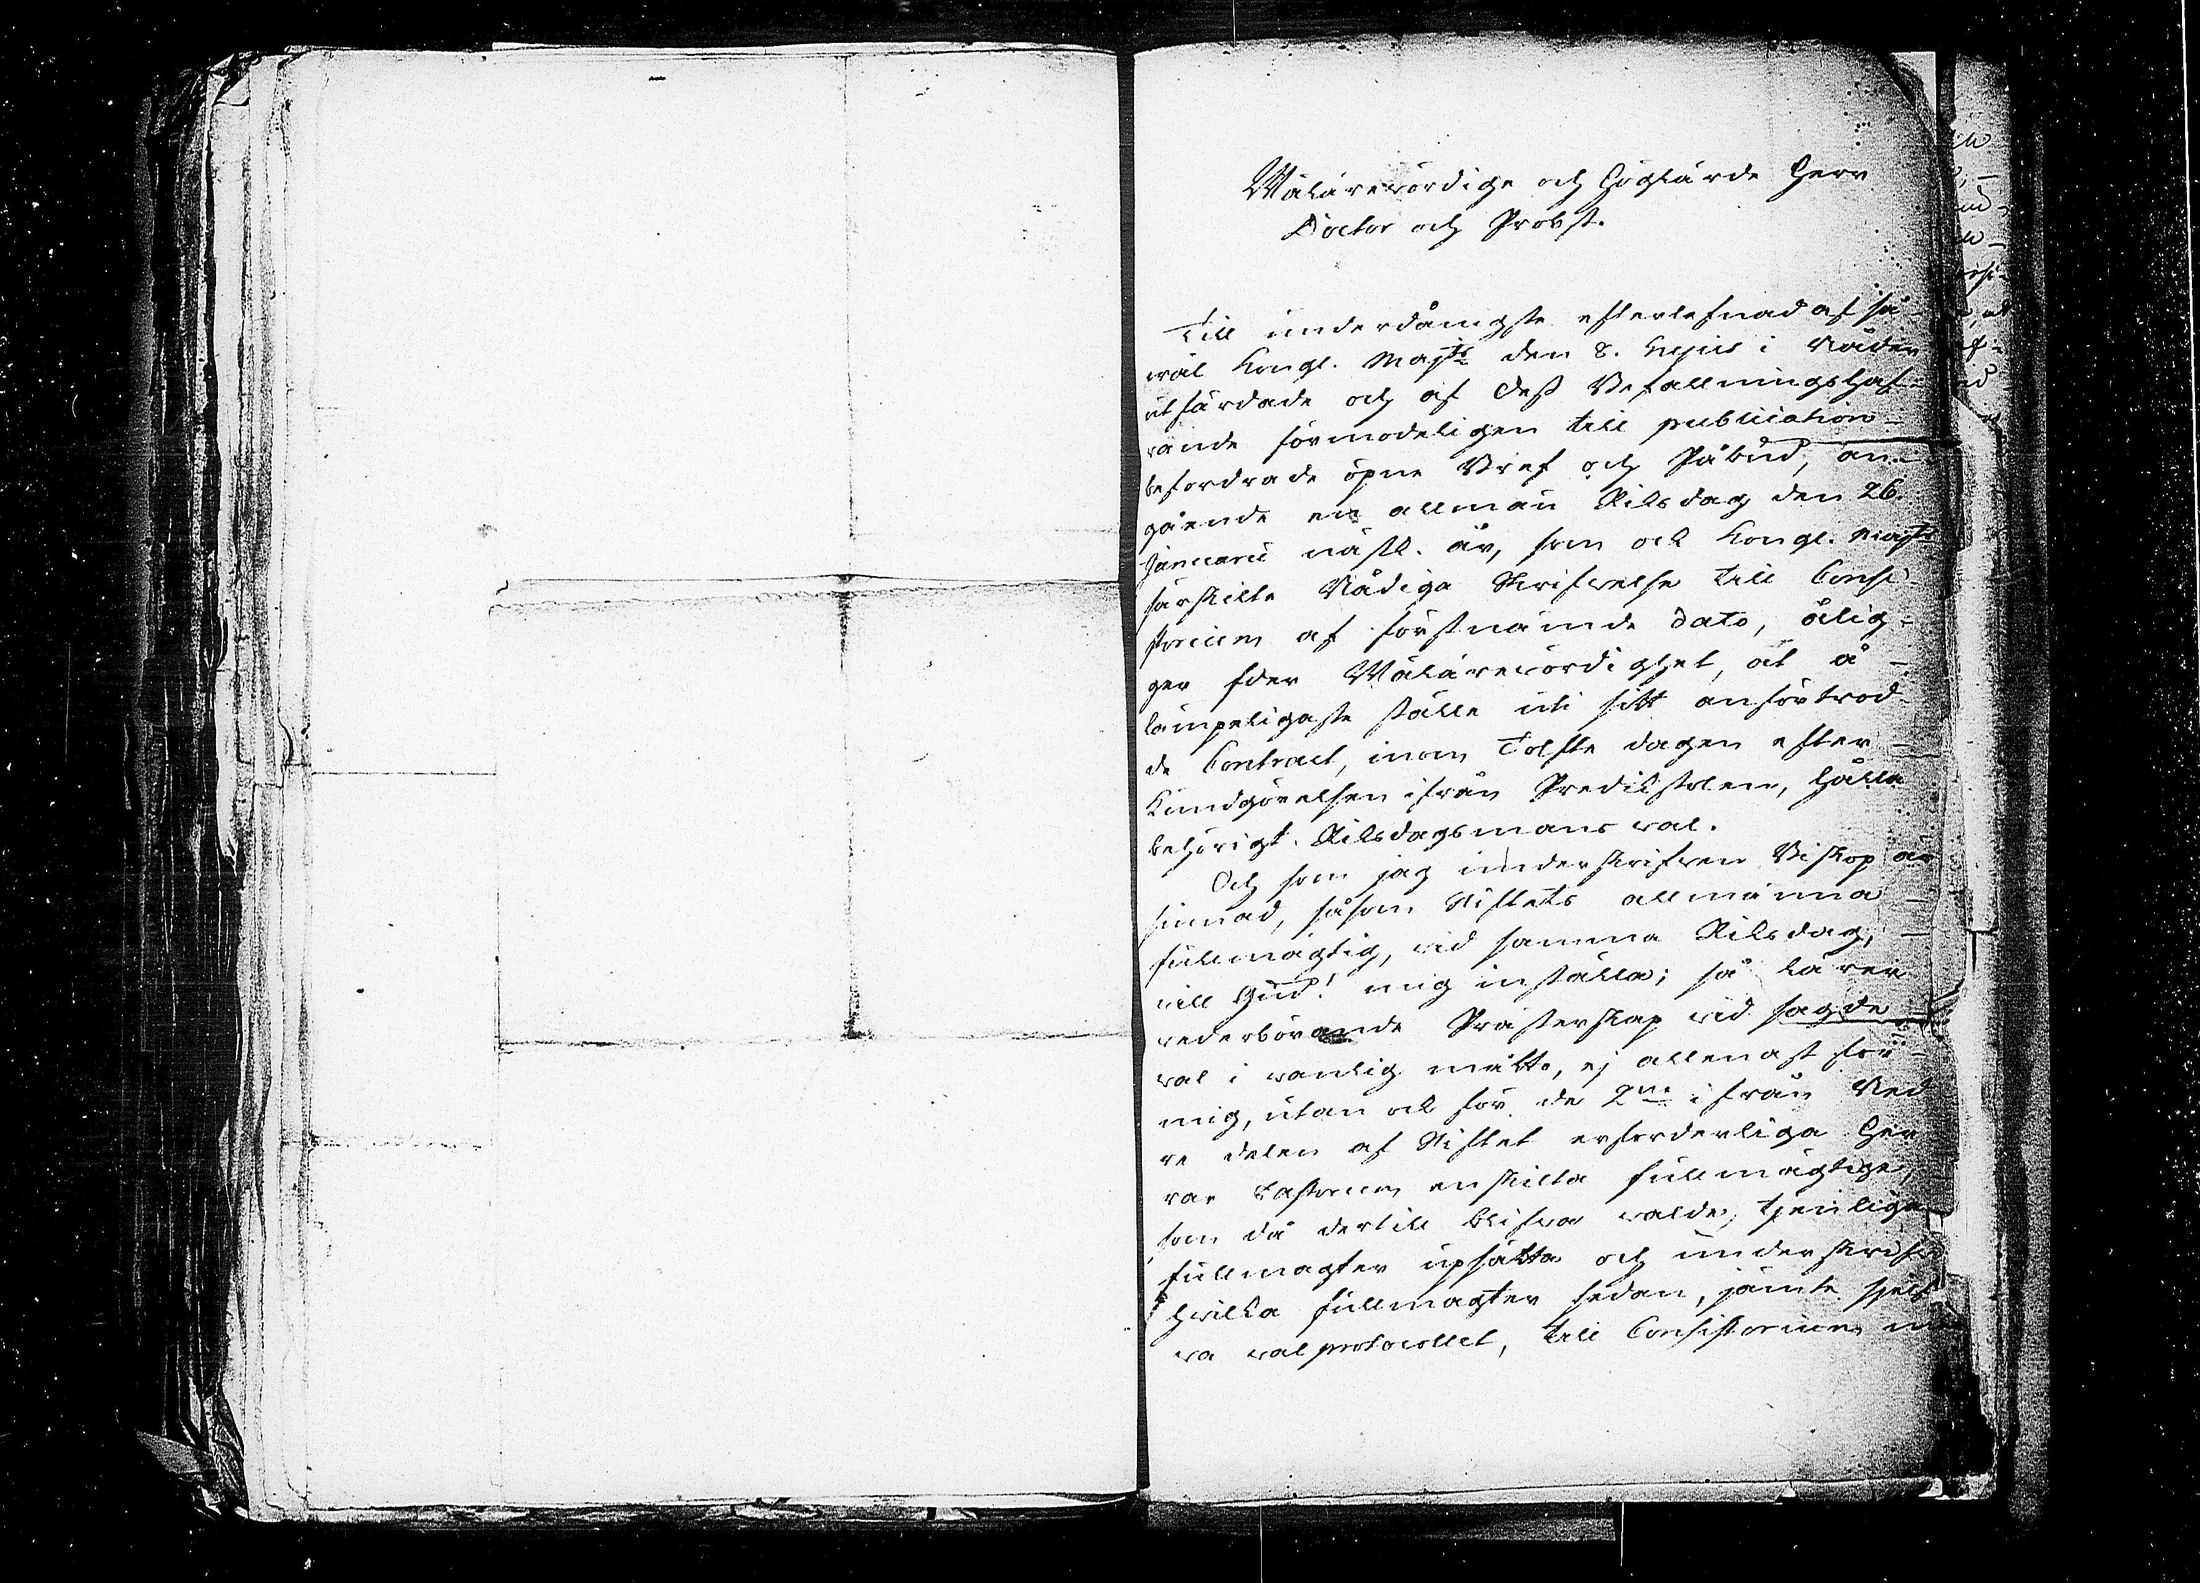 Wälärewördige och Höglärde Herr
Doctor och Probst.
Till underdånigste efterlefnad af så-
wäl Kongl. Majts den 8. hujus i Nåder
utfärdade och af Dess Befallningshaf-
wande förmodeligen till publication
befordrade öpne Bref och Påbud, an-
gående en allmän Riksdag den 26.
Januarii nästk. år, som ock Kongl. Majts
särskilte Nådiga Skrifwelse till Consi-
storium af förstnämnde dato, ålig-
ger Eder Wälärewördighet, at å
lämpeligaste ställe uti sitt anförtrod-
de Contract, inom Tolfte dagen efter
Kundgörelsen ifrån Predikstolen, hålla
behörigt Riksdagsmans wal.
Och som jag underskrifwen Biskop är
sinnad, såsom Stiftets allmänna
fullmägtig, wid samma Riksdag,
will Gud! mig inställa; så lärer
wederbörande Prästerskap wid sagde
wal i wanlig måtto, ej allenast för
mig, utan ock för de 2ne ifrån Ned-
re delen af Stiftet erforderliga Her-
rar Pastorum enskilta fullmägtige,
som då dertill blifwa walde, tjenliga
fullmagter upsätta och underskrif
hwilka fullmagter sedan, jämte sjelf-
wa walprotocollet, till Consistorium